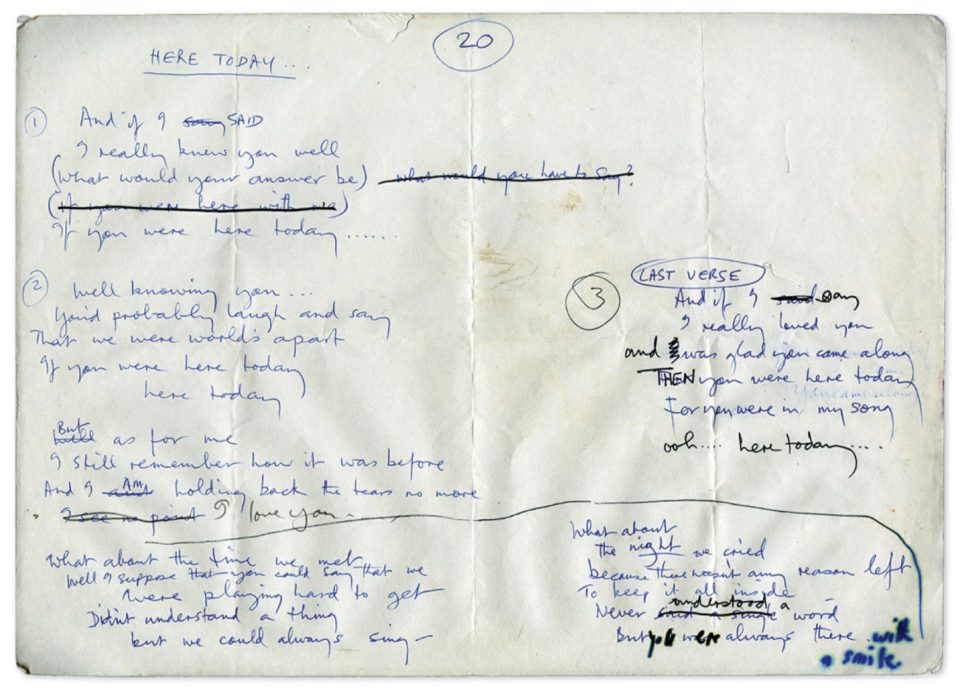 20
HERE TODAY...
1 And if I say SAID
I really knew you well
(What would your answer be) what would you have to say?
(if you were here with me)
If you were here today......
2 Well knowing you...
You'd probably laugh and say
That we were world's apart
If you were here today
here today
But
Well as for me
I still remember how it was before
And I AM holding back the tears no more
I see no point I love you.
What about the time we met
Well I suppose that you could say that we
were playing hard to get
Didn't understand a thing
but we could always sing –
3 LAST VERSE
And if I said say
I really loved you
and was glad you came along
THEN you were here today
You came along
For you were in my song
ooh.... here today....
What about
the night we cried
because there wasn't any reason left
To keep it all inside
understood a
Never said a single word
But you were always there with
a smile